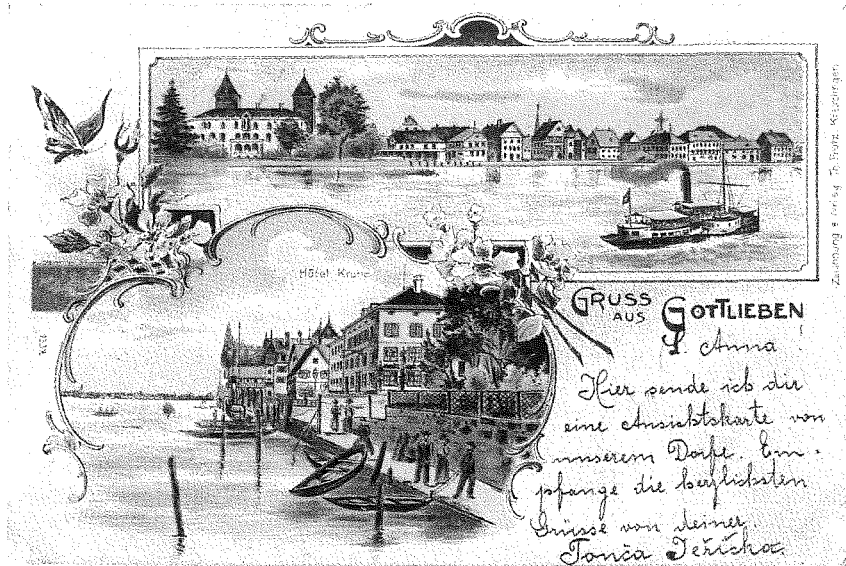 Hôtel Krone
GRUSS
AUS GOTTLIEBEN
L. Anna!
Hier sende ich dir
eine Ansichtskarte von
unserem Dorfe. Em-
pfange die herzlichsten
Grüsse von deiner
Tonča Ježicha
Zeichnung & Verlag Th. Frohz, Kreuzlingen